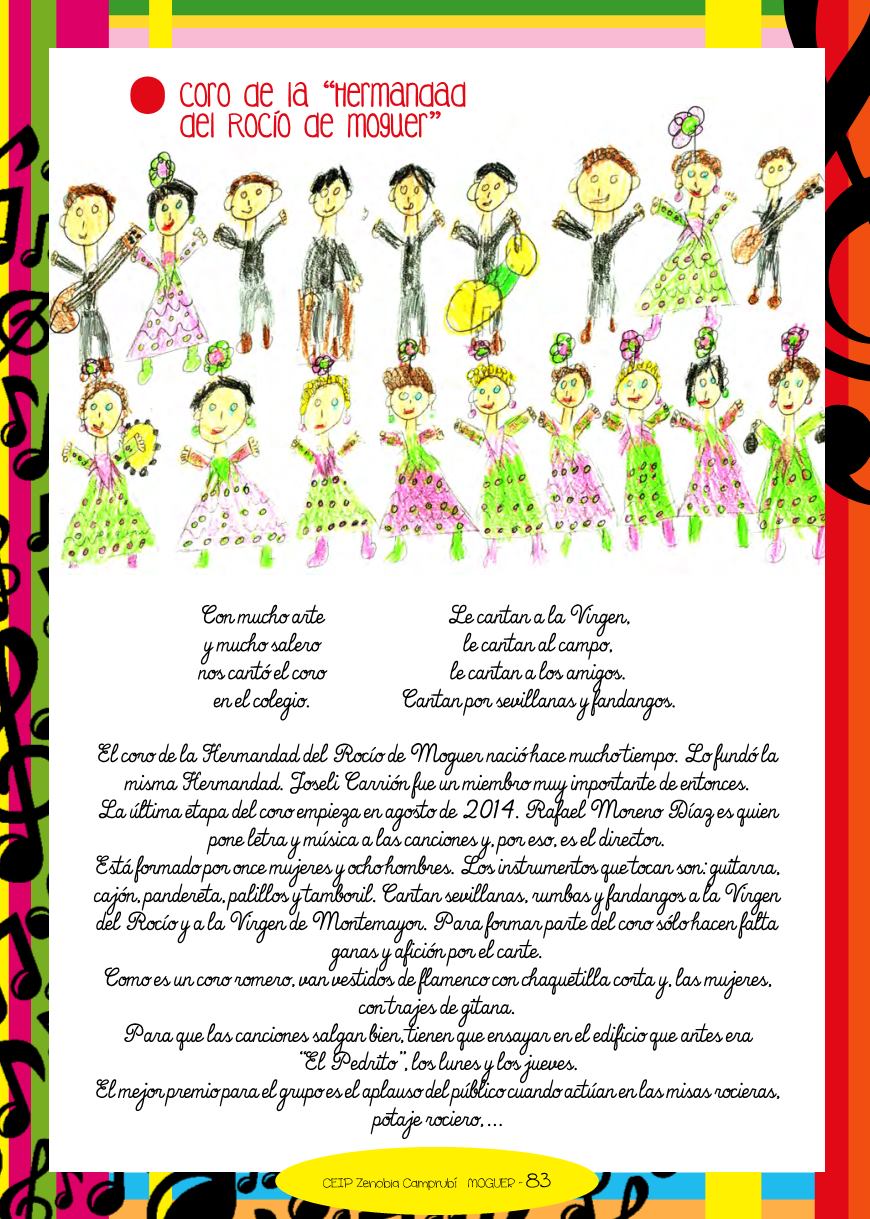 Coro de la "Hermandad
del Rocío de Moguer"
Con mucho arte
y mucho salero
nos cantó el coro
en el colegio.
Le cantan a la Virgen,
le cantan al campo,
le cantan a los amigos.
Cantan por sevillanas y fandangos.
El coro de la Hermandad del Rocío de Moguer nació hace mucho tiempo. Lo fundó la
misma Hermandad. Joseli Carrión fue un miembro muy importante de entonces.
La última etapa del coro empieza en agosto de 2014. Rafael Moreno Díaz es quien
pone letra y música a las canciones y, por eso, es el director.
Está formado por once mujeres y ocho hombres. Los instrumentos que tocan son: guitarra,
cajón, pandereta, palillos y tamboril. Cantan sevillanas, rumbas y fandangos a la Virgen
del Rocío y a la Virgen de Montemayor. Para formar parte del coro sólo hacen falta
ganas y afición por el cante.
Como es un coro romero, van vestidos de flamenco con chaquetilla corta y, las mujeres,
con trajes de gitana.
Para que las canciones salgan bien, tienen que ensayar en el edificio que antes era
"El Pedrito", los lunes y los jueves.
El mejor premio para el grupo es el aplauso del público cuando actúan en las misas rocieras,
potaje rociero,...
CEIP Zenobia Camprubí MOGUER - 83